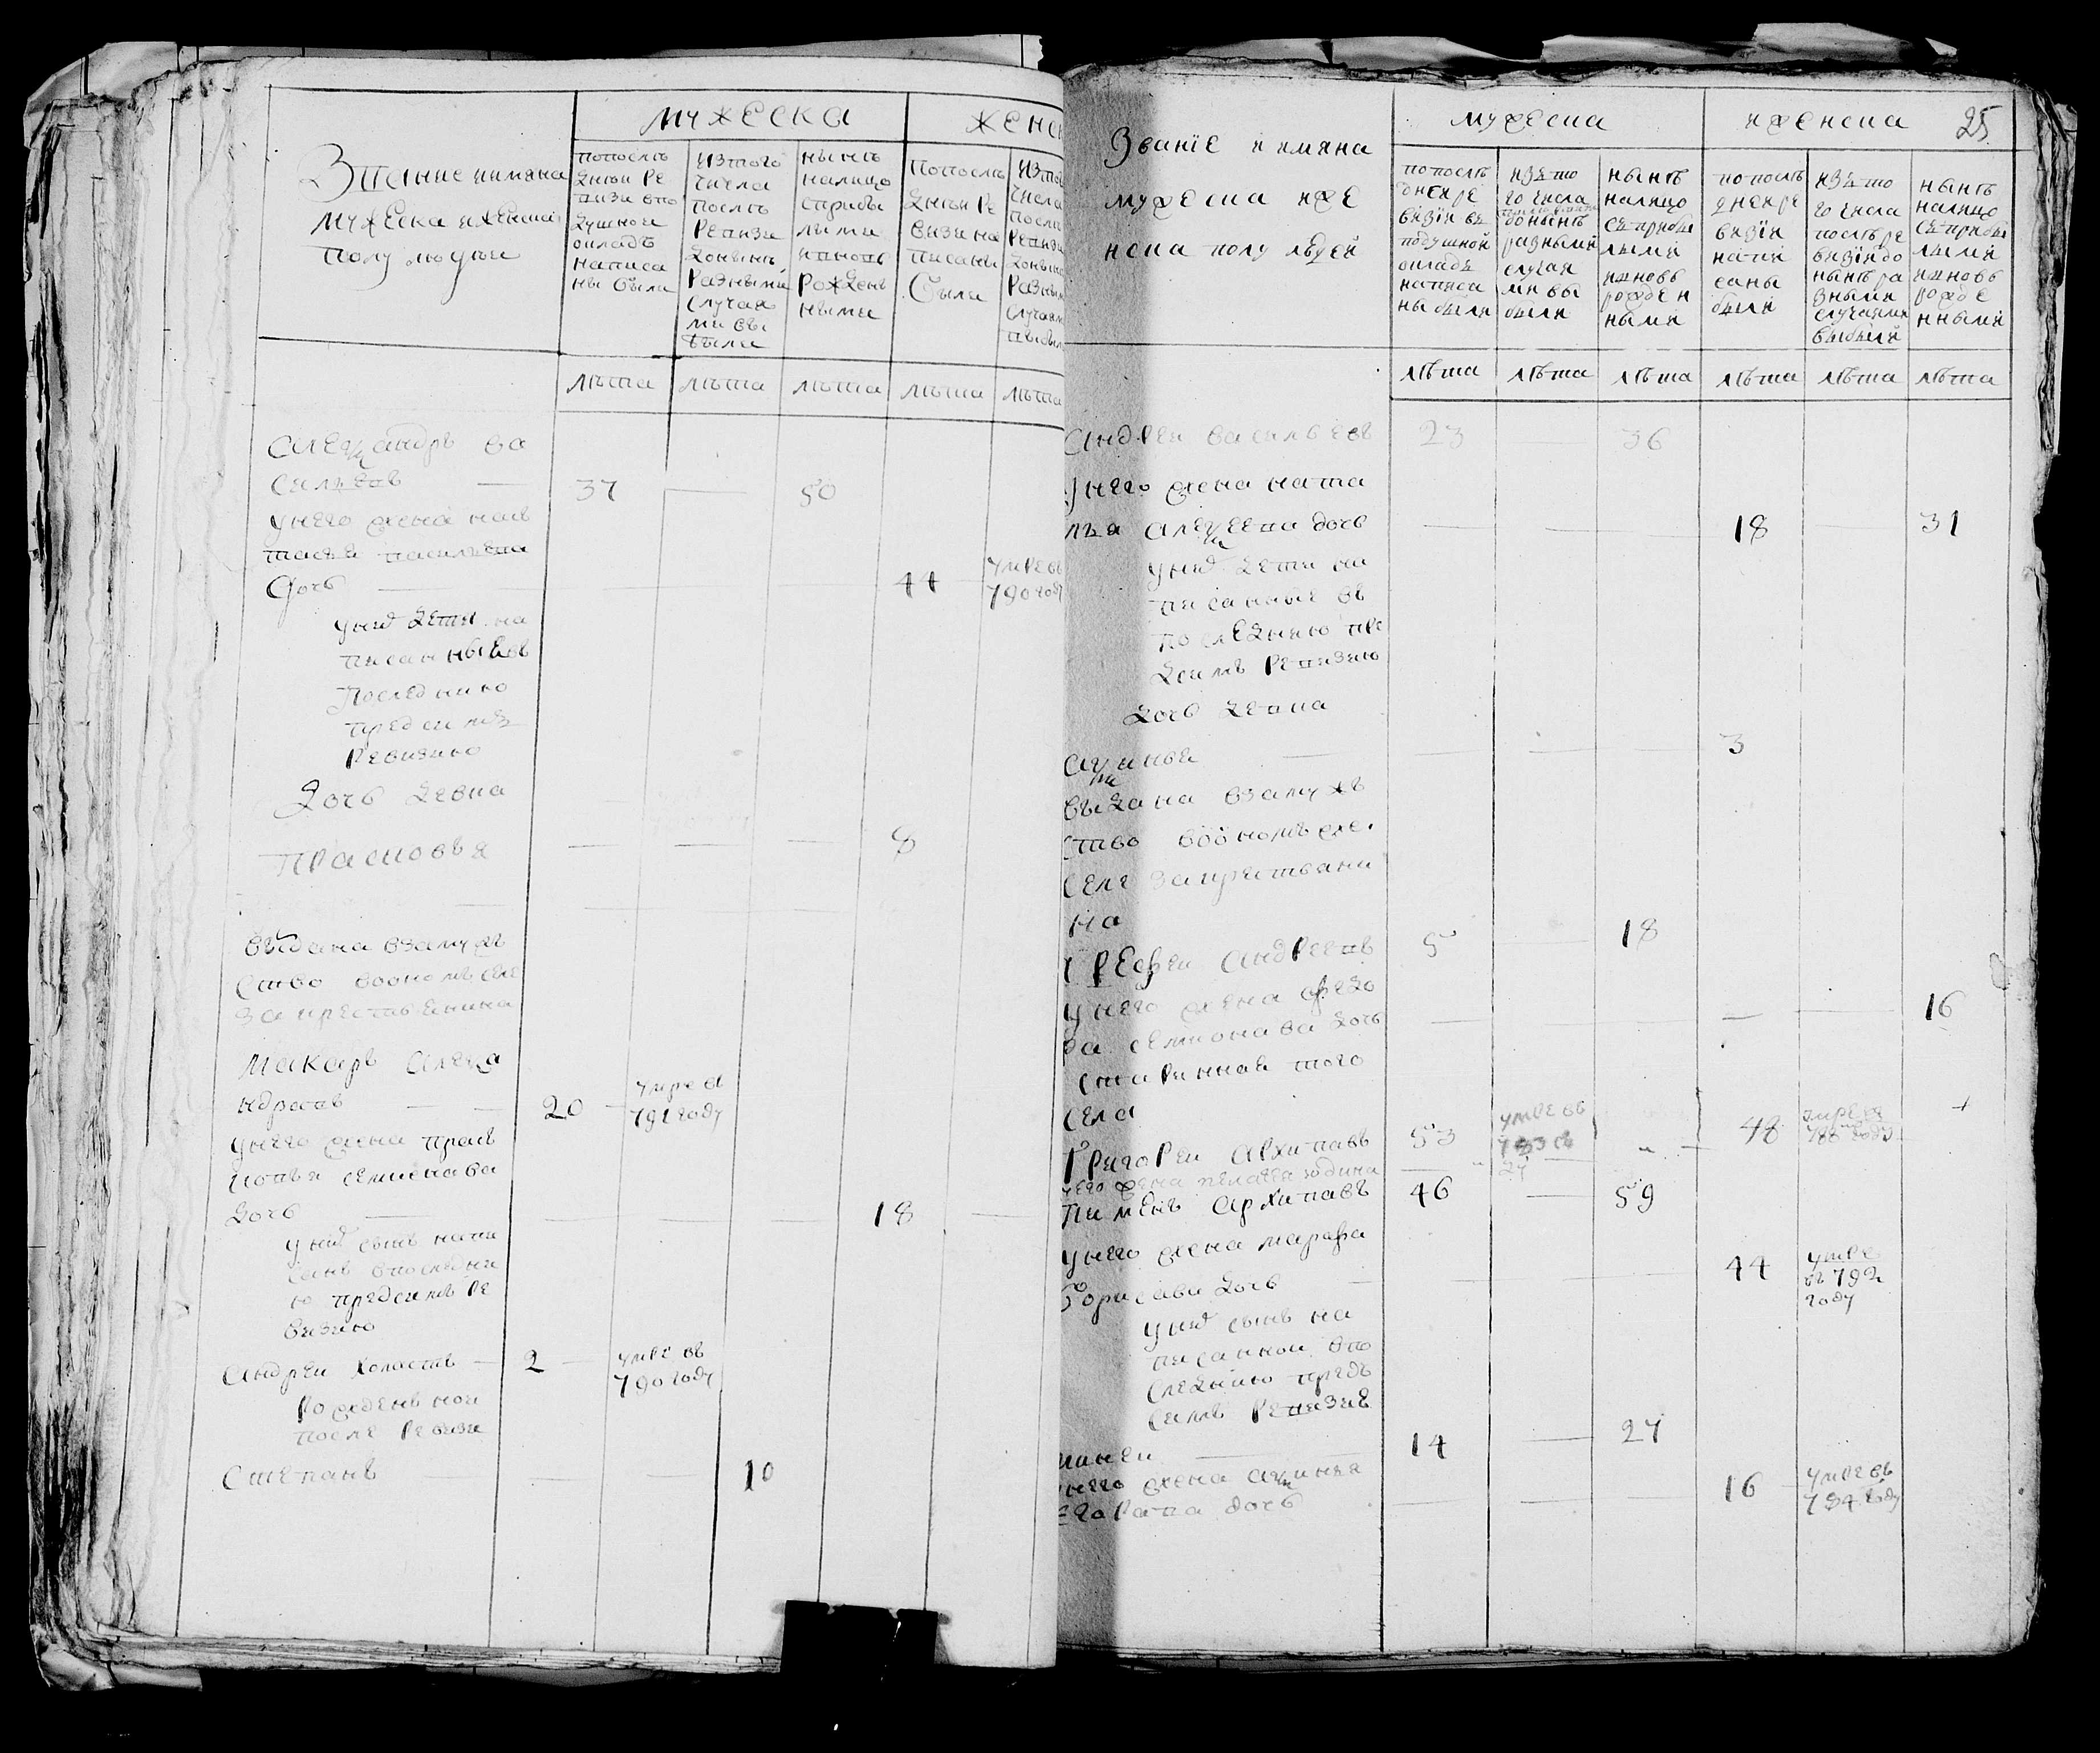 мужеска
женс
Звание имяна
мужеска иженска
полу людеи
попослѣ
днѣи ре
визи впо
душнои
окладъ
написа
ны были
изтого
числа
послѣ
ревизи
доныне
разными
случая
ми вы
были
нынѣ
налицо
сприбы
лыми
ивновь
рожден
ными
попослѣ
днѣи ре
визи на
писаны
были
изтого
числа
послѣ
ревизи
доныне
разным
случаям
выбыл
лѣта лѣта лѣта лѣта лѣта
Александръ ва
сильевъ — 37 — 50
унего жена нас
тасья васильева
дочь — 44 умре въ 790 году
уних дети на
писанные въ
последнию
пред симъ
ревизию
дочь девка
Прасковья — — — 8
выдана взамужъ
ство воономъ селе
закрестьянина
Макаръ Алекса
ндровъ — 20 умре въ 791 году
унего жена прас
ковья семионава
дочь — — — 18 —
уних сынъ напи
санъ впоследни
ю предсимъ ре
визию
Андреи холостъ — 2 — умре въ 790 году
рожденнои
после ревизи
Степанъ — — 10
25
мужеска
иженска
Званiе иимяна
мужеска иже
нска полу людей
попослѣ
днеи ре
визiи въ
подушной
окладъ
написа
ны были
изъто
го числа
донынѣ
разными
случая
ми вы
были
нынѣ
налицо
съприбы
лыми
иновь
рожден
ными
попослѣ
днеи ре
визiи
напи
саны
были
изъто
го числа
послѣ ре
визiи до
нынѣ ра
зными
случаями
выбыли
нынѣ
налицо
съприбы
лыми
иновь
рожде
нными
лѣта лѣта лѣта лѣта лѣта лѣта
Андреи васильевъ 23 — 36
унего жена ната
лья алексеева дочь — — 18 — 31
уних дети на
писанные въ
последнию пре
дсимъ ревизию
дочь девка
акулина — — — — 3
выдана взамужъ
ство воономъ же
селе закрестьяни
на
Ерефеи андреевъ 5 — 18
унего жена федо
ра семионава дочь — — — 16
старинная того
села
Григореи архиповъ 53 умре въ 793 48 умре въ 788 году
Пименъ архиповъ 46 — 59
унего жена марфа
борисава дочь — — — 44 умре въ 792 году
уних сынъ на
писаннои впо
следнию предъ
симъ ревизию
14 — 27
унего жена акулина
егорава дочь — — — 16 умре въ 794 году